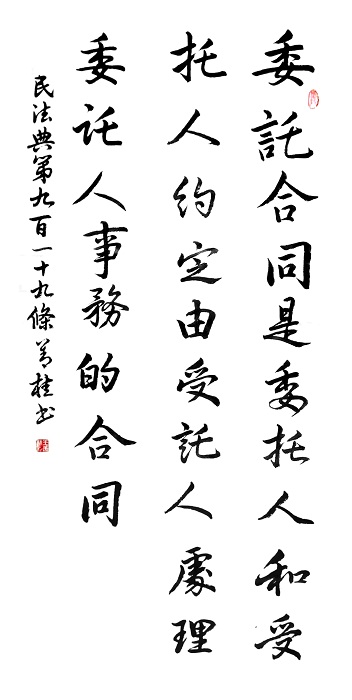 委託合同是委托人和受
托人約定由受託人處理
委託人事務的合同
民法典第九百一十九條 桂书